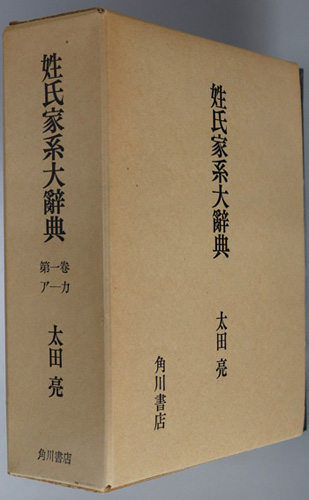 姓氏家系大辭典
第一巻
ア―カ
太田亮
角川書店
姓氏家系大辭典
太田亮
角川書店